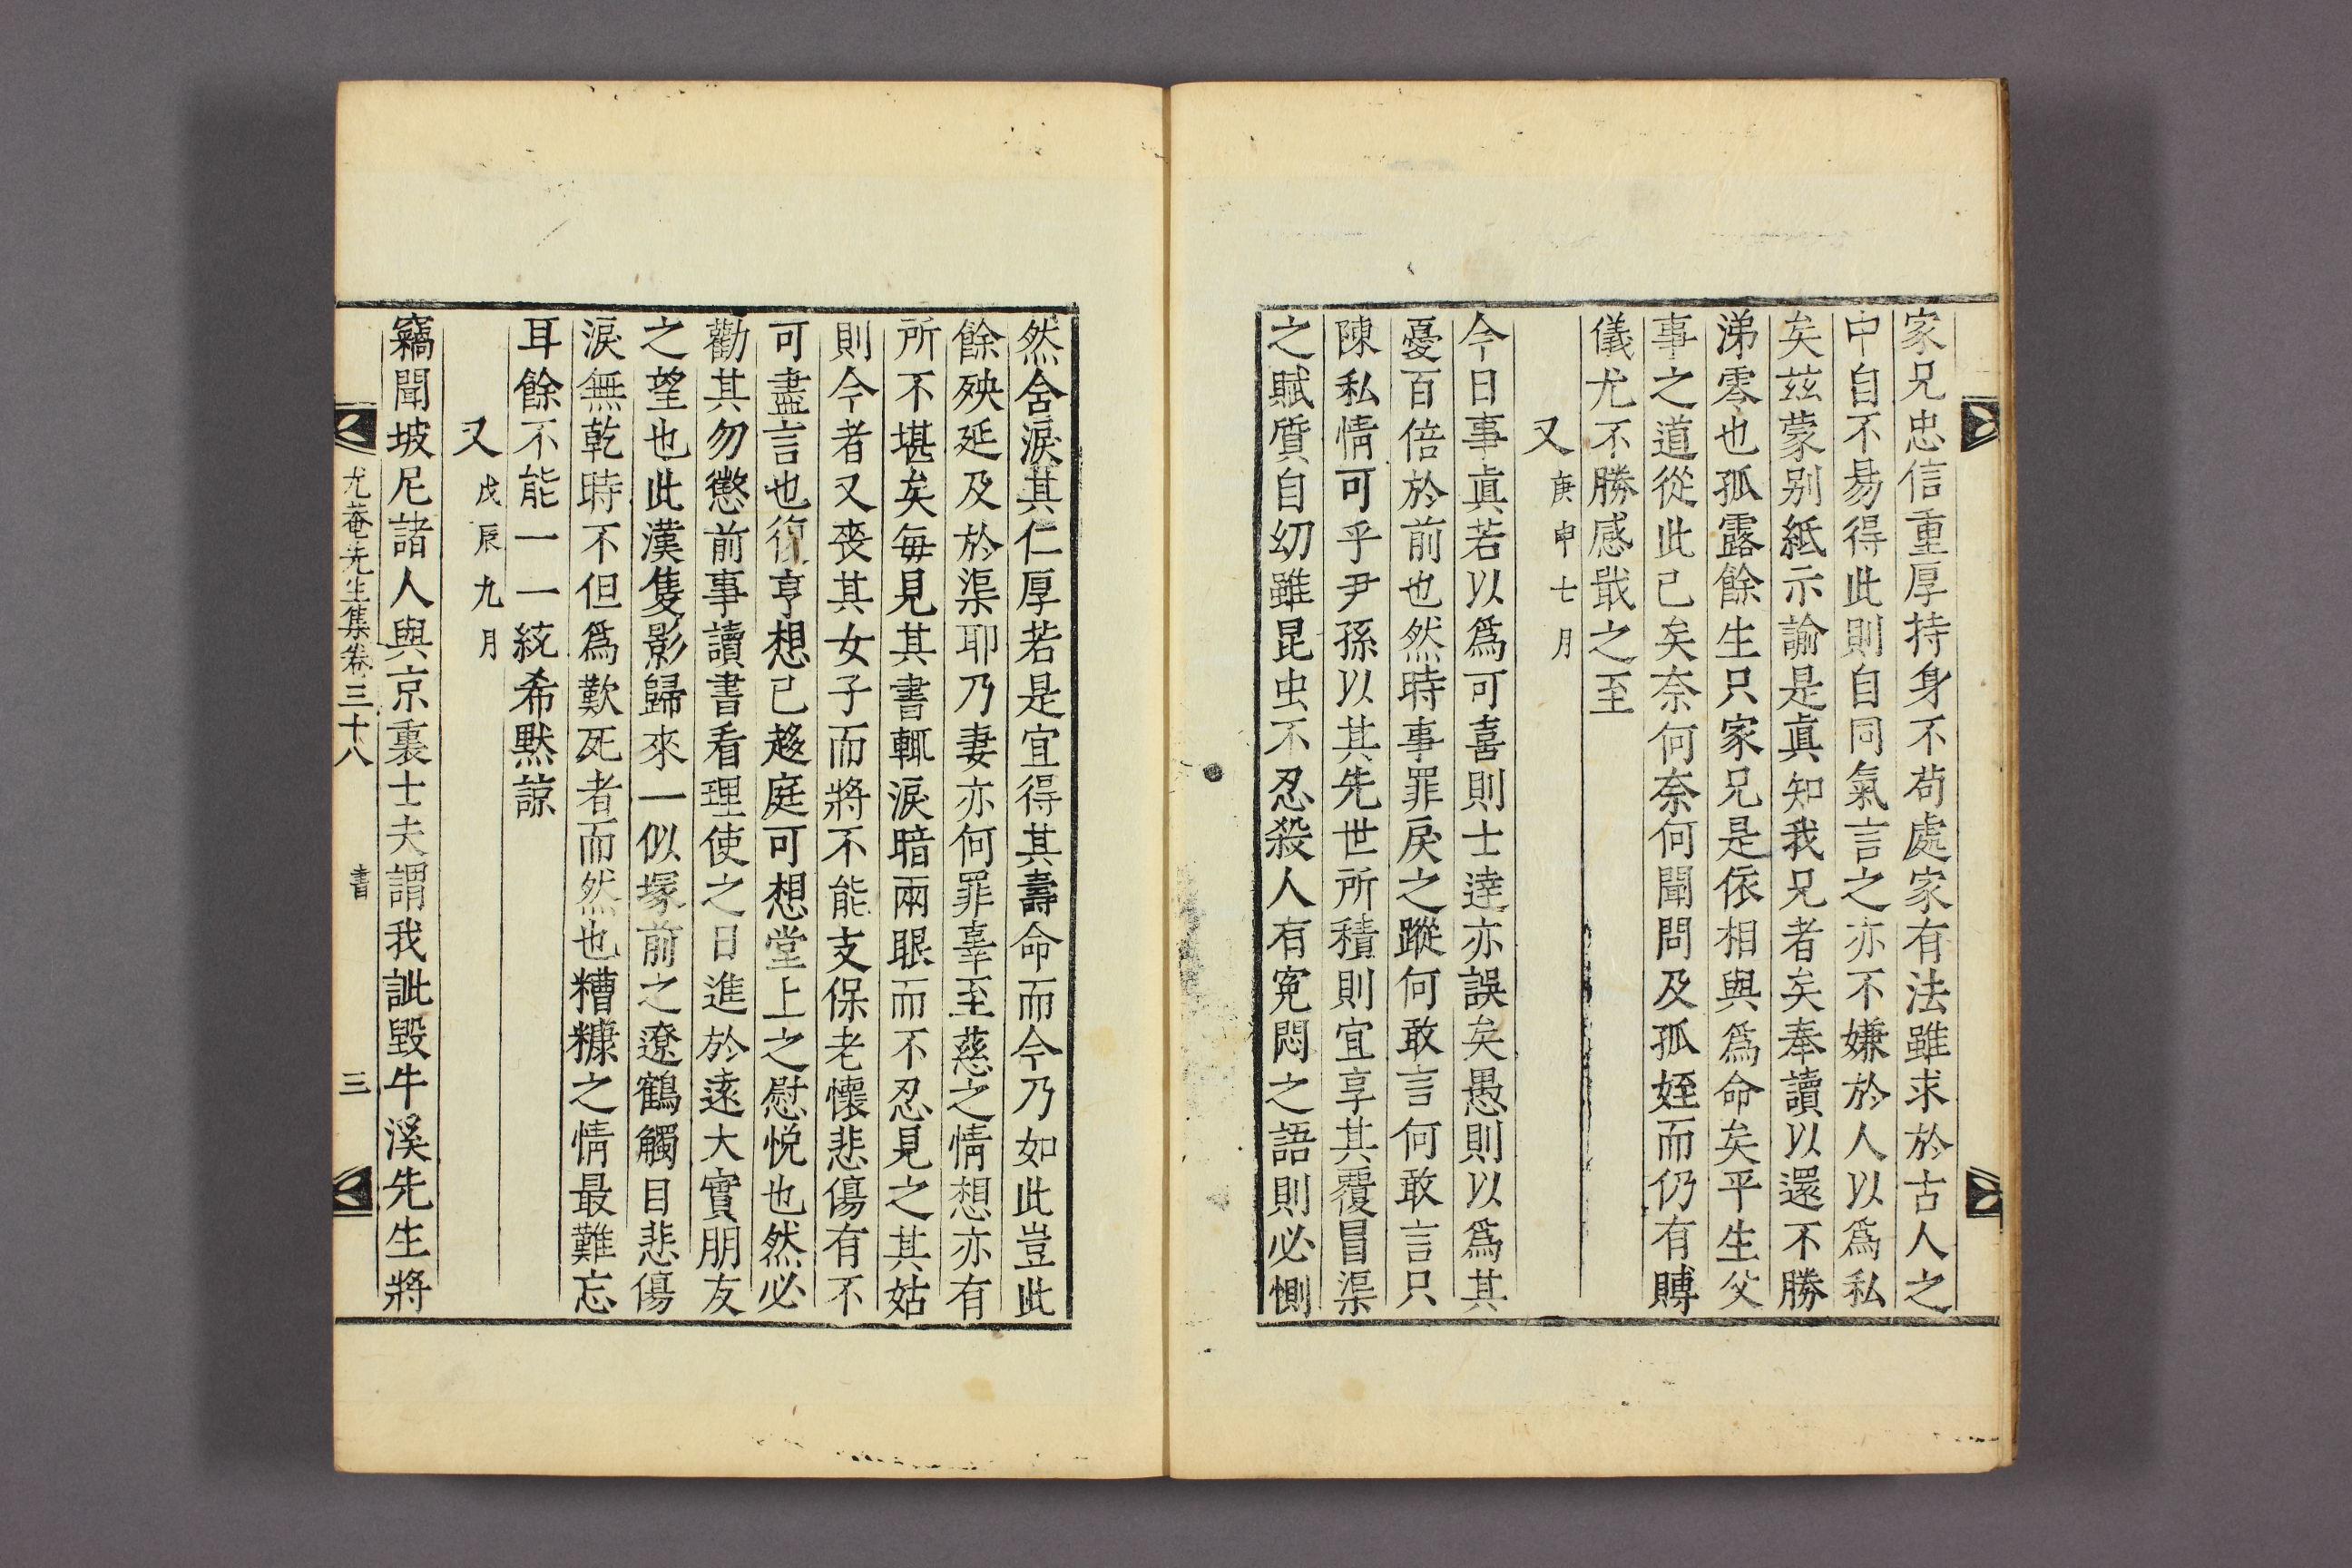 家兄忠信重厚持身不苟處家有法雖求於古人之
中自不易得此則自同氣言之亦不嫌於人以爲私
矣玆蒙别紙示諭是眞知我兄者矣奉讀以還不勝
涕零也孤露餘生只家兄是依相與爲命矣平生父
事之道從此已矣奈何奈何聞問及孤姪而仍有賻
儀尤不勝感戢之至
又 庚申七月
今日事眞若以爲可喜則士達亦誤矣愚則以爲其
憂百倍於前也然時事罪戾之蹤何敢言何敢言只
陳私情可乎尹孫以其先世所積則宜享其覆冒渠
之賦質自幼雖昆虫不忍殺人有寃悶之語則必惻
然含淚其仁厚若是宜得其壽命而今乃如此豈此
餘殃延及於渠耶乃妻亦何罪辜至慈之情想亦有
所不堪矣每見其書輒淚暗兩眼而不忍見之其姑
則今者又喪其女子而將不能支保老懷悲傷有不
可盡言也復亨想已趍庭可想堂上之慰悅也然必
勸其勿懲前事讀書看理使之日進於遠大實朋友
之望也此漢隻影歸來一似塚前之遼鶴觸目悲傷
淚無乾時不但爲歎死者而然也糟糠之情最難忘
耳餘不能一一統希默諒
又 戊辰九月
竊聞坡尼諸人與京裏士夫謂我訿毀牛溪先生將
尤菴先生集卷三十八 書 三